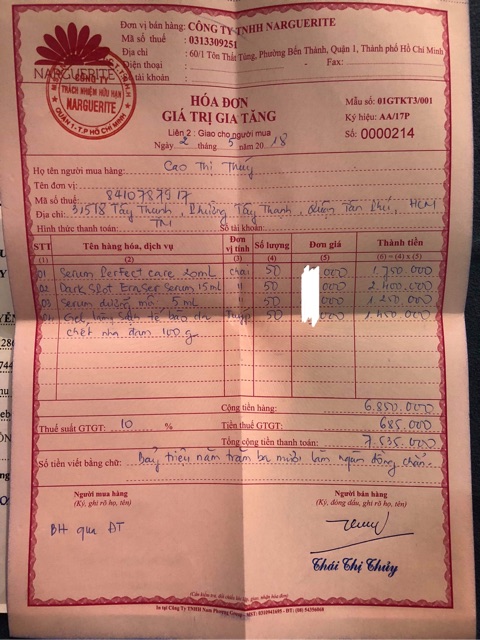 Đơn vị bán hàng: CÔNG TY TNHH NARGUERITE
Mã số thuế : 0313309251
Địa chỉ : 60/1 Tôn Thất Tùng, Phường Bến Thành, Quận 1, Thành phố Hồ Chí Minh
Điện thoại : - Fax:
tài khoản:
NARGUERITE
CÔNG TY
TRÁCH NHIỆM HỮU HẠN
NARGUERITE
QUẬN 1 - T.P HỒ CHÍ MINH
HÓA ĐƠN
GIÁ TRỊ GIA TĂNG
Liên 2: Giao cho người mua
Ngày 2 tháng 5 năm 2018
Mẫu số: 01GTKT3/001
Ký hiệu: AA/17P
Số: 0000214
Họ tên người mua hàng: Cao Thị Thúy
Tên đơn vị:
Mã số thuế: 8410787917
Địa chỉ: 31S18 Tây Thạnh, Phường Tây Thạnh, Quận Tân Phú, HCM
Hình thức thanh toán: TM Số tài khoản:
STT Tên hàng hóa, dịch vụ Đơn vị tính Số lượng Đơn giá Thành tiền
(1) (2) (3) (4) (5) (6) = (4) x (5)
01 Serum Perfect care 20ml chai 50 000 1.750.000
02 Dark Spot Eraser Serum 15ml " 50 000 2.400.000
03 Serum dưỡng mi 5ml " 50 000 1.250.000
04 Gel làm sạch tế bào da Tuýp 50 000 1.450.000
chết nha đam 100g
Cộng tiền hàng: 6.850.000
Thuế suất GTGT: 10 % Tiền thuế GTGT: 685.000
Tổng cộng tiền thanh toán: 7.535.000
Số tiền viết bằng chữ: Bảy triệu năm trăm ba mươi lăm ngàn đồng chẵn.
Người mua hàng
(Ký, ghi rõ họ, tên)
Người bán hàng
(Ký, đóng dấu, ghi rõ họ, tên)
BH qua ĐT
Thái Thị Thủy
(Cần kiểm tra, đối chiếu khi lập, giao, nhận hóa đơn)
In tại Công Ty TNHH Nam Phương Group - MST: 0310943695 - ĐT: (08) 54356068